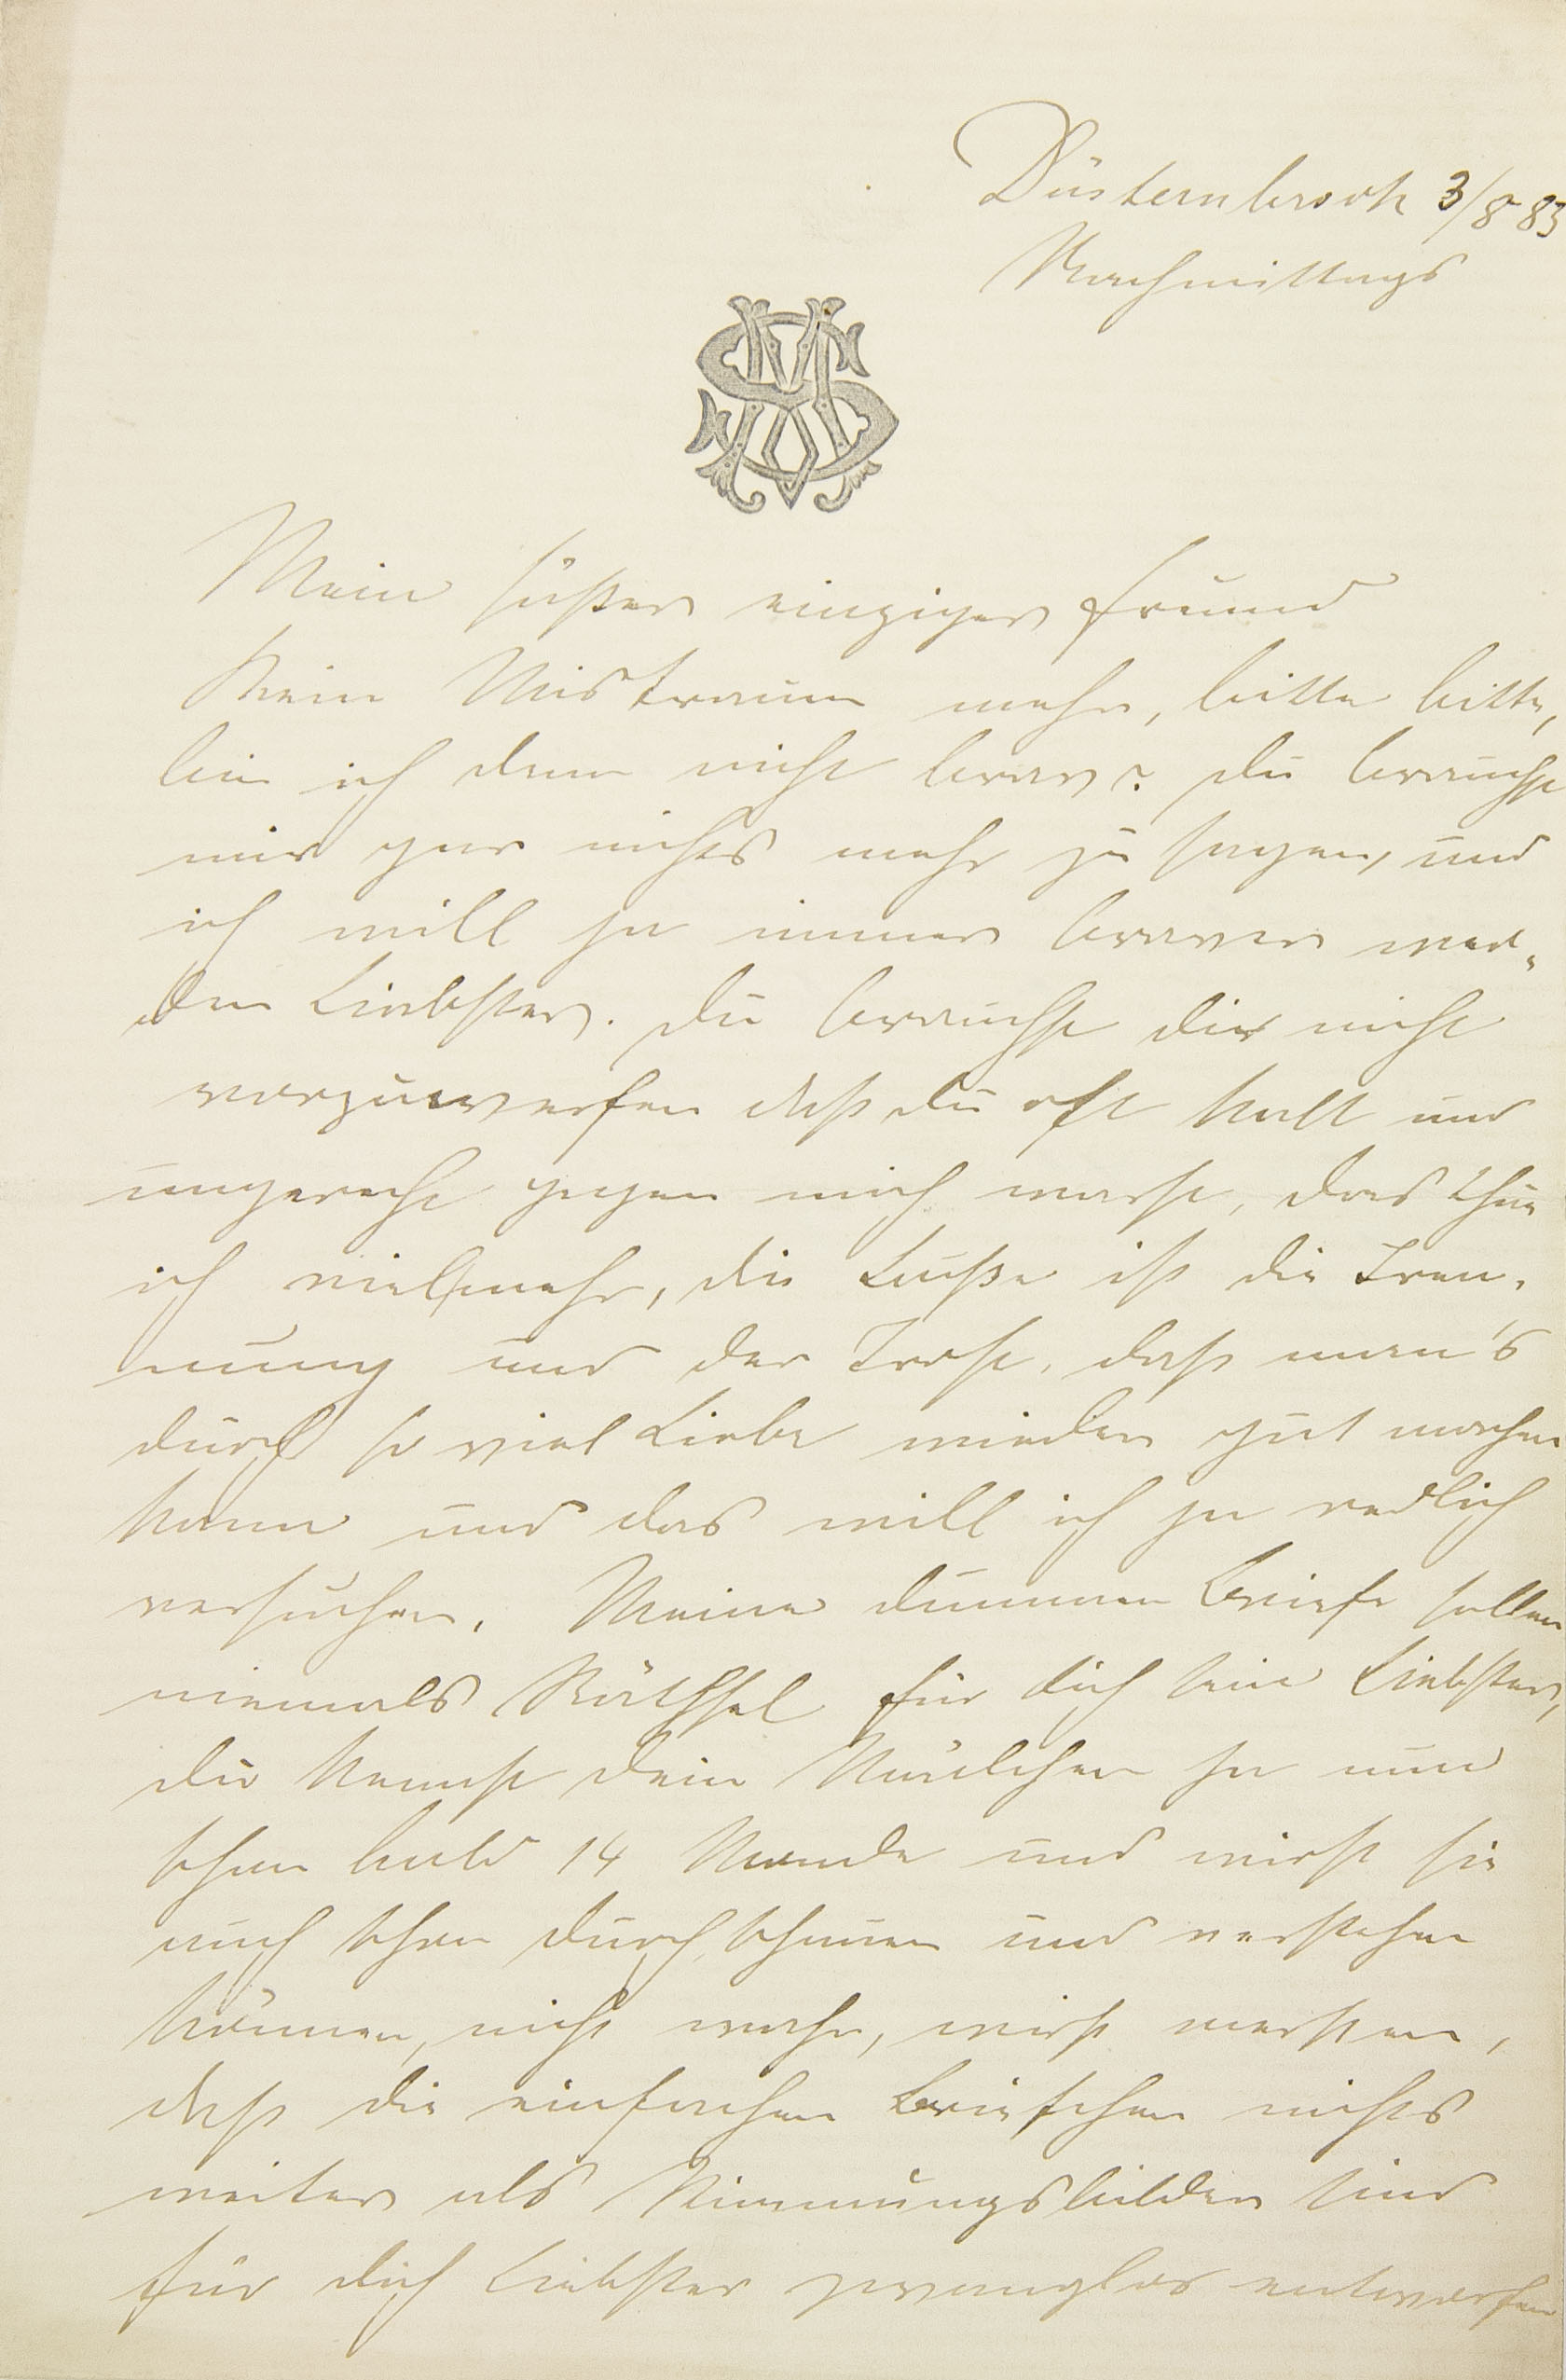 Düsternbrook 3/8 83
Nachmittags
Mein süßer einziger Freund
Kein Mistrauen mehr, bitte bitte,
bin ich denn nicht brav? Du brauchst
mir gar nichts mehr zu sagen, und
ich will ja immer braver wer-
den Liebster. Du brauchst dir nicht
vorzuwerfen daß du oft kalt und
ungerecht gegen mich warst, das thue
ich vielmehr, die Buße ist die Tren-
nung und der Trost, daß man's
durch so viel Liebe wieder gut machen
kann und das will ich ja redlich
versuchen. Meine dummen Briefe sollen
niemals Räthsel für dich sein Liebster,
du kennst dein Mädchen ja nun
schon bald 14 Monde und wirst sie
auch schon durchschauen und verstehen
können, nicht wahr, wirst merken,
daß die einfachen Briefchen nichts
weiter als Stimmungsbilder sind
für dich Liebster zwanglos entworfen